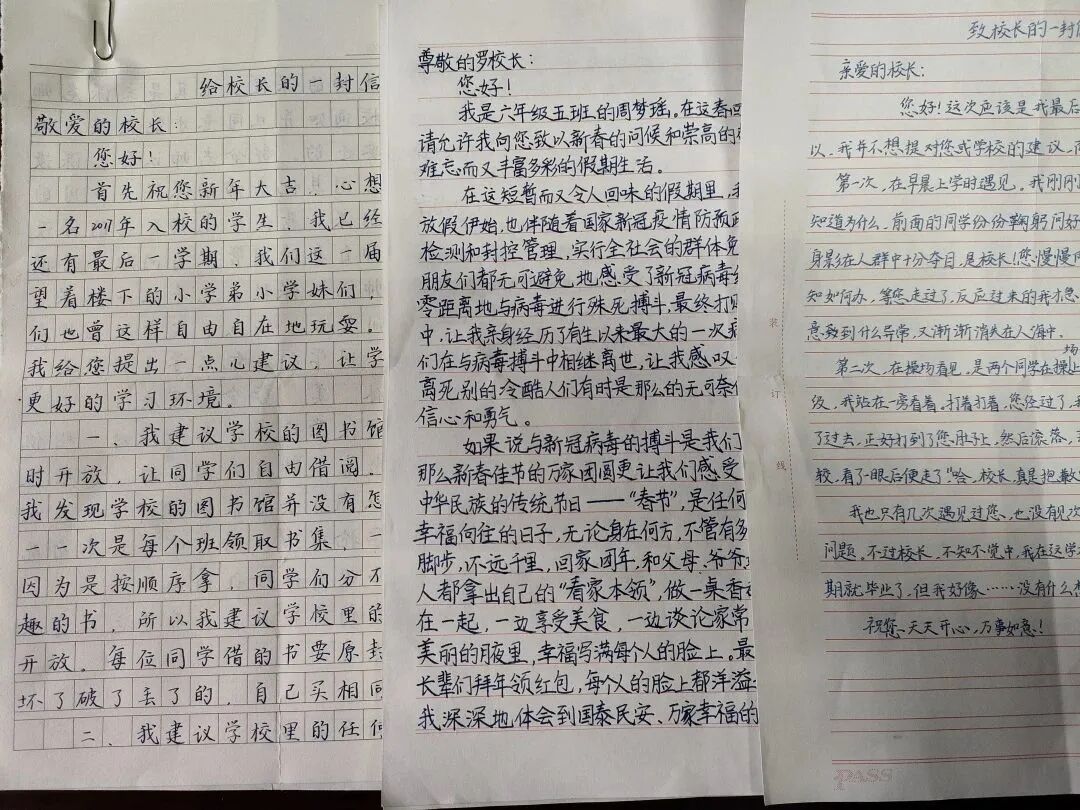 给校长的一封信
敬爱的校长：
您好！
首先祝您新年大吉，心想
一名2017年入校的学生，我已经
还有最后一学期，我们这一届
望着楼下的小学弟小学妹们，
们也曾这样自由自在地玩耍。
我给您提出一点儿建议，让学
更好的学习环境。
一、我建议学校的图书馆
时开放，让同学们自由借阅。
我发现学校的图书馆并没有怎
一一次是每个班领取书集，一
因为是按顺序拿，同学们分不
趣的书，所以我建议学校里的
开放。每位同学借的书要原封
坏了破了丢了的，自己买相同
二、我建议学校里的任何
尊敬的罗校长：
您好！
我是六年级五班的周梦瑶。在这春回
请允许我向您致以新春的问候和崇高的
难忘而又丰富多彩的假期生活。
在这短暂而又令人回味的假期里，我
放假伊始，也伴随着国家新冠疫情防预政
检测和封控管理，实行全社会的群体免
朋友们都无可避免地感受了新冠病毒
零距离地与病毒进行殊死搏斗，最终打败
中，让我亲身经历了有生以来最大的一次病
们在与病毒搏斗中相继离世，让我感叹
离死别的冷酷人们有时是那么的无可奈何
信心和勇气。
如果说与新冠病毒的搏斗是我们
那么新春佳节的万家团圆更让我们感受
中华民族的传统节日——“春节”，是任何
幸福向往的日子，无论身在何方，不管有多
脚步，不远千里，回家团年，和父母、爷爷
人都拿出自己的“看家本领”，做一桌香
在一起，一边享受美食，一边谈论家常
美丽的夜里，幸福写满每个人的脸上。最
长辈们拜年领红包，每个人的脸上都洋溢
我深深地体会到国泰民安、万家幸福的
致校长的一封信
亲爱的校长：
您好！这次应该是我最后
以，我并不想提对您或学校的建议，而
第一次，在早晨上学时遇见。我刚刚
知道为什么，前面的同学份份鞠躬问好
身影在人群中十分夺目，是校长！您慢慢向
知如何办，等您走过了，反应过来的我才
意到什么异常，又渐渐消失在人海中。
第二次，在操场看见，是两个同学在操场上
级，我站在一旁看着。打着打着，您经过了，
了过去，正好打到了您肚子上，然后滚落，
较，看了一眼后便走了“哈，校长，真是抱歉
我也只有几次遇见过您，也没有几次
问题。不过校长，不知不觉中，我在这学
期就毕业了，但我好像……没有什么
祝您天天开心，万事如意！
装
订
线
PASS